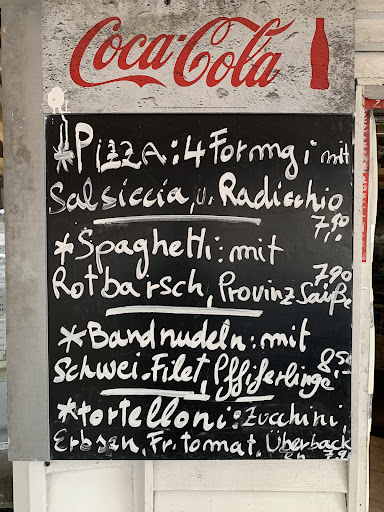 Coca-Cola
* Pizza: 4 Formgi mit
Salsiccia, u. Radicchio
7,90
* Spaghetti: mit
7,90
Rotbarsch, Provinz Soße
* Bandnudeln: mit
Schwei-Filet, Pfifferlinge 8,50
* tortelloni: Zucchini,
Erbsen, Fr. tomat, Überback
en 7,9